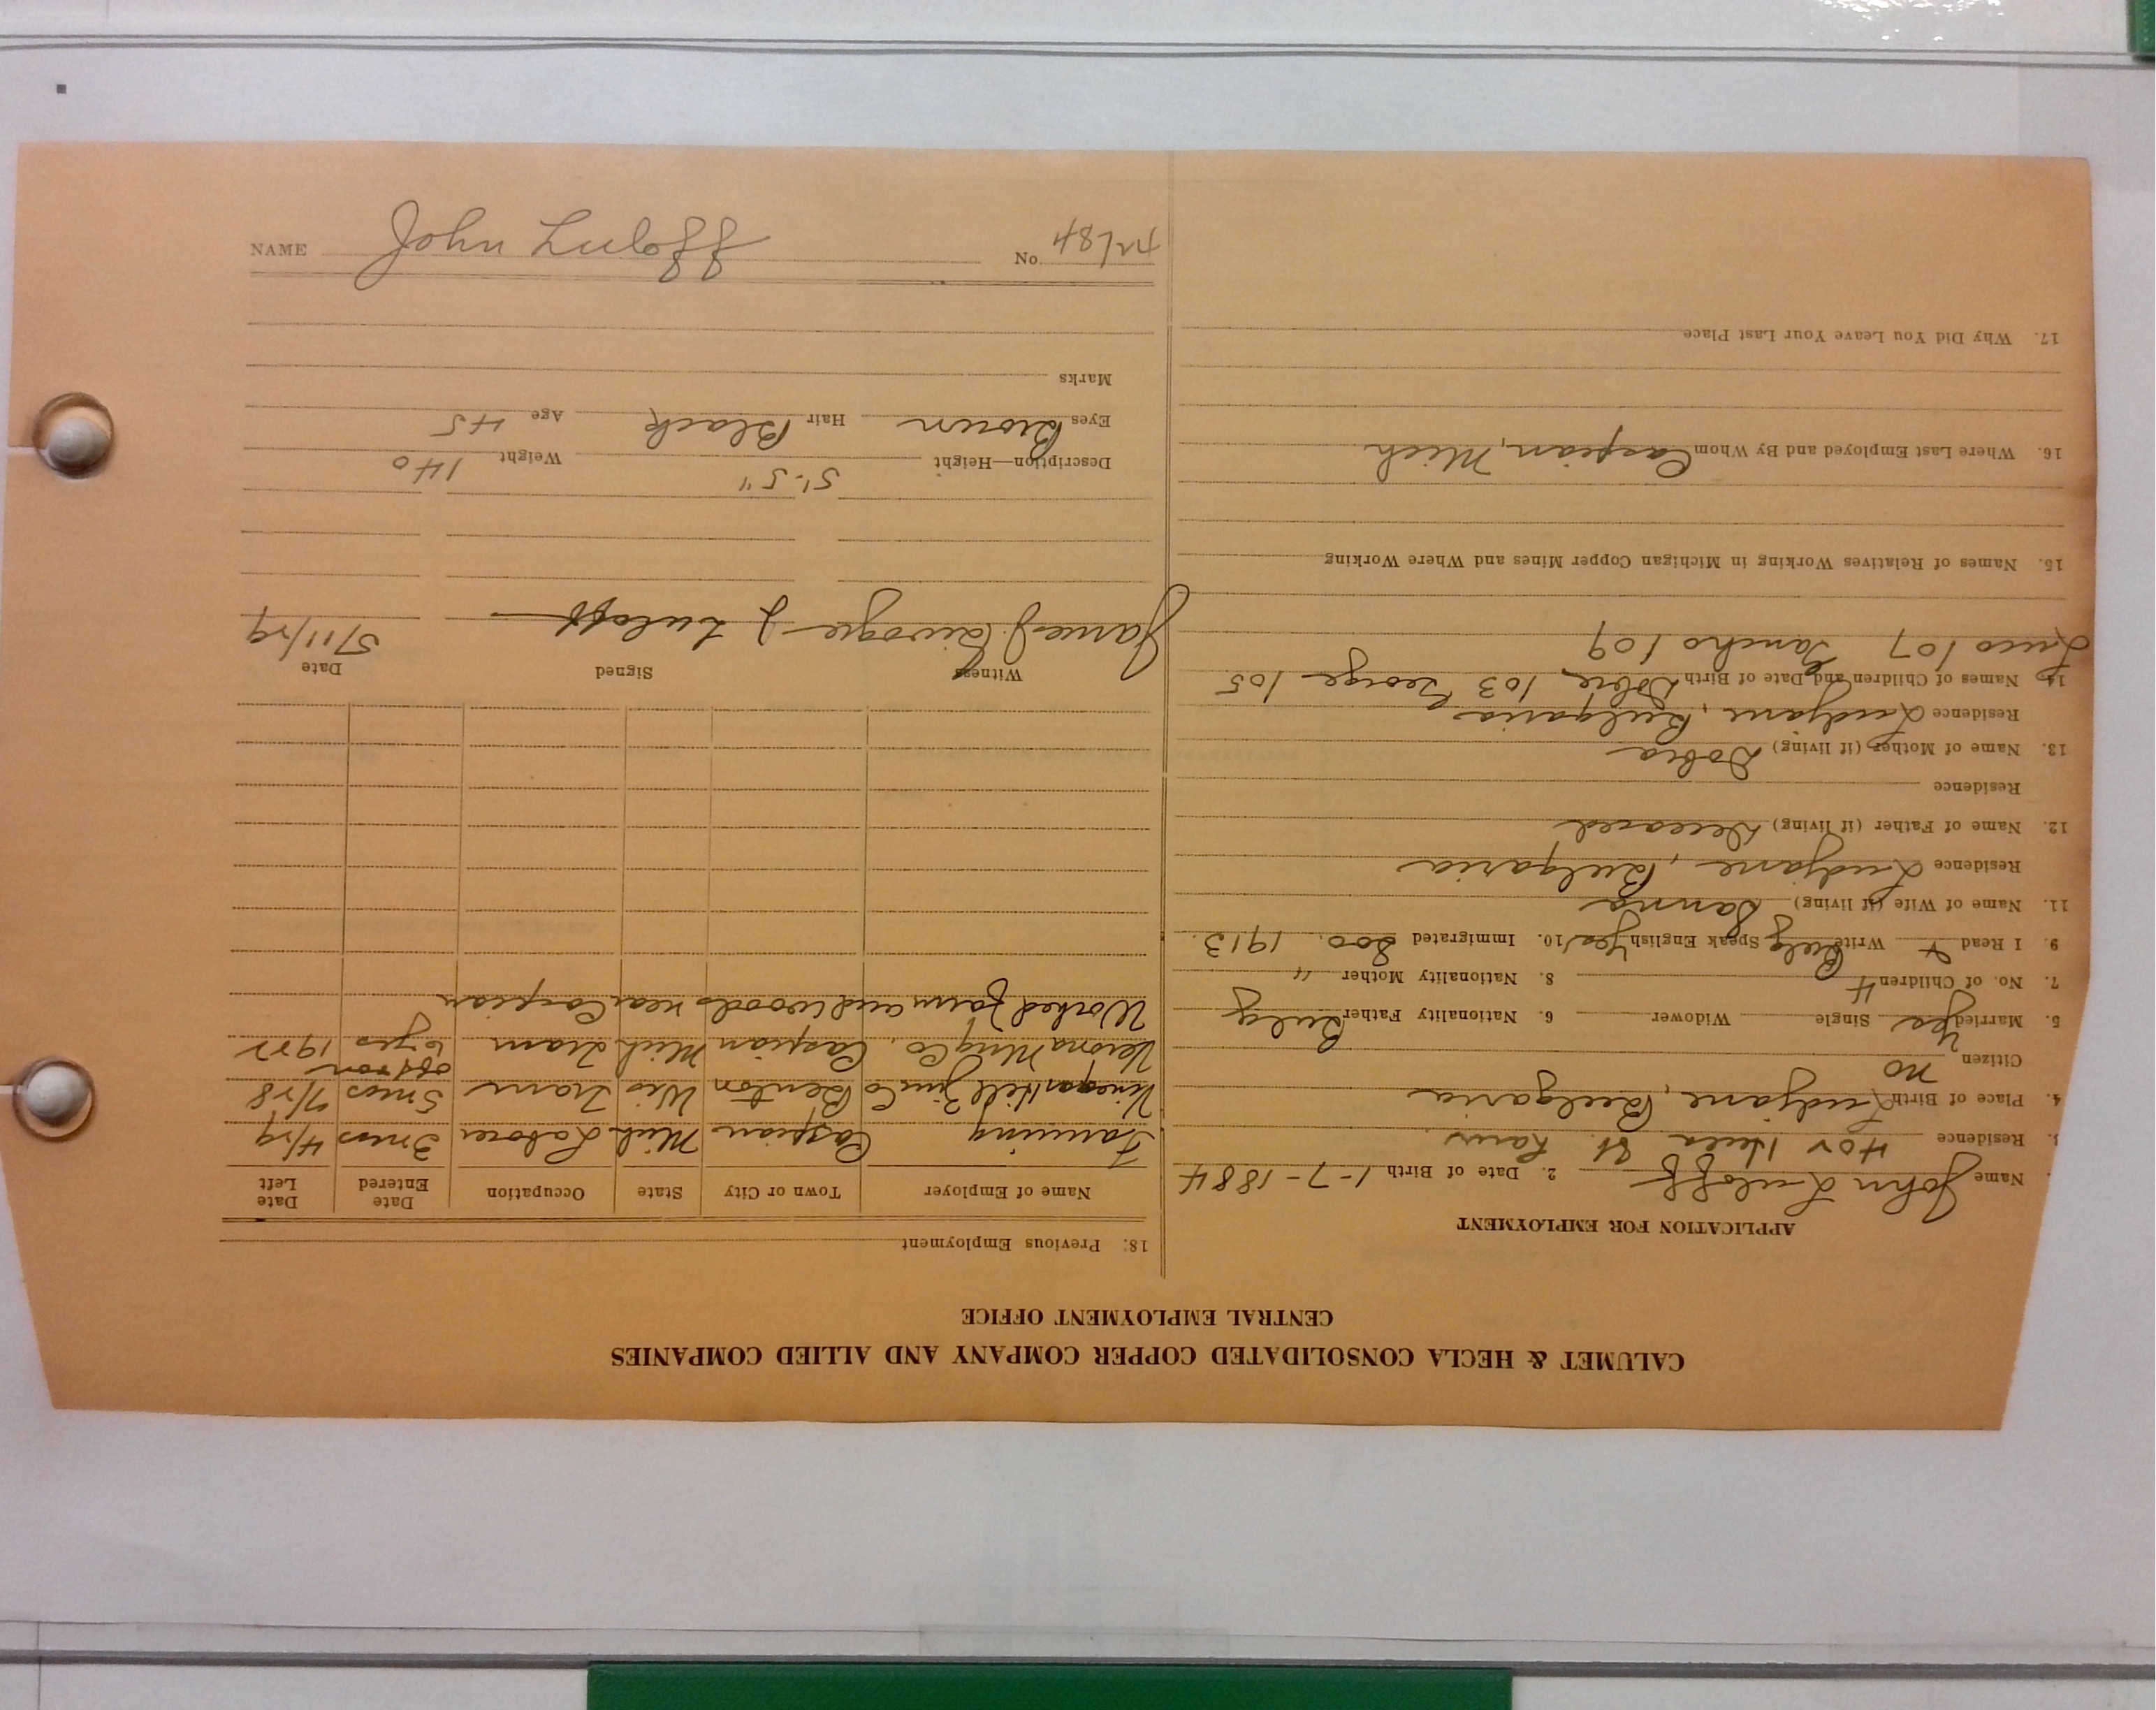 CALUMET & HECLA CONSOLIDATED COPPER COMPANY AND ALLIED COMPANIES
CENTRAL EMPLOYMENT OFFICE
APPLICATION FOR EMPLOYMENT
Name John Luloff 2. Date of Birth 1-7-1884
3. Residence 402 Hecla St. Laur
4. Place of Birth Ludjane, Bulgaria
Citizen no
5. Married Yes Single Widower 6. Nationality Father Bulg
7. No. of Children 4 8. Nationality Mother "
9. I Read & Write Bulg Speak English Yes 10. Immigrated Soo. 1913.
11. Name of Wife (if living) Janna
Residence Ludjane, Bulgaria
12. Name of Father (if living) Deceased
Residence
13. Name of Mother (if living) Dobra
Residence Ludjane, Bulgaria
14. Names of Children and Date of Birth Dobre 103 George 105
107 Sancho 109
15. Names of Relatives Working in Michigan Copper Mines and Where Working
16. Where Last Employed and By Whom Caspian, Mich.
17. Why Did You Leave Your Last Place
18. Previous Employment
Name of Employer Town or City State Occupation Date Entered Date Left
Farming Caspian Mich Laborer 3 mos 4/29
Vinegar Hill Zinc Co Benton Wis Tram 5 mos 9/28
Verona Mng Co. Caspian Mich Tram off & on 6 yrs 1922
Worked farm and woods near Caspian
Witness Signed Date
James J. J Luloff 5/11/29
Description—Height 5'-5" Weight 140
Eyes Brown Hair Black Age 45
Marks
NAME John Luloff No. 42184